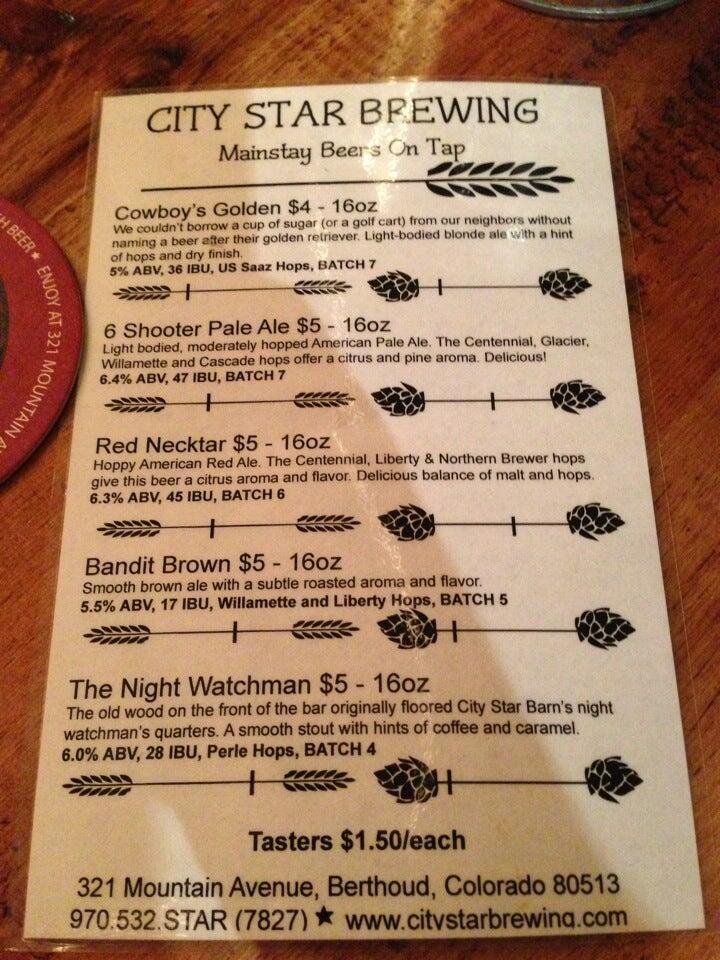 CITY STAR BREWING
Mainstay Beers On Tap
Cowboy's Golden $4 - 16oz
We couldn't borrow a cup of sugar (or a golf cart) from our neighbors without
naming a beer after their golden retriever. Light-bodied blonde ale with a hint
of hops and dry finish.
5% ABV, 36 IBU, US Saaz Hops, BATCH 7
6 Shooter Pale Ale $5 - 16oz
Light bodied, moderately hopped American Pale Ale. The Centennial, Glacier,
Willamette and Cascade hops offer a citrus and pine aroma. Delicious!
6.4% ABV, 47 IBU, BATCH 7
Red Necktar $5 - 16oz
Hoppy American Red Ale. The Centennial, Liberty & Northern Brewer hops
give this beer a citrus aroma and flavor. Delicious balance of malt and hops.
6.3% ABV, 45 IBU, BATCH 6
Bandit Brown $5 - 16oz
Smooth brown ale with a subtle roasted aroma and flavor.
5.5% ABV, 17 IBU, Willamette and Liberty Hops, BATCH 5
The Night Watchman $5 - 16oz
The old wood on the front of the bar originally floored City Star Barn's night
watchman's quarters. A smooth stout with hints of coffee and caramel.
6.0% ABV, 28 IBU, Perle Hops, BATCH 4
Tasters $1.50/each
321 Mountain Avenue, Berthoud, Colorado 80513
970.532.STAR (7827) ★ www.citystarbrewing.com
BEER ★ ENJOY AT 321 MOUNTAIN